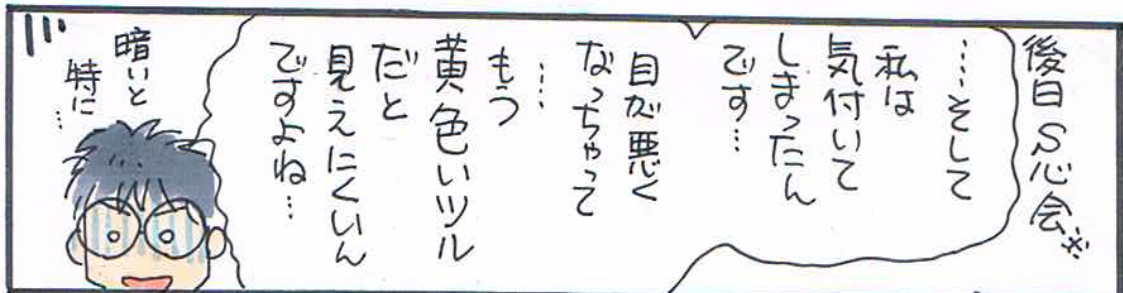 後日S心会※
……そして
私は
気付いて
しまったん
です…
目が悪く
なっちゃって
……
もう
黄色いツル
だと
見えにくいん
ですよね…
暗いと
特に…